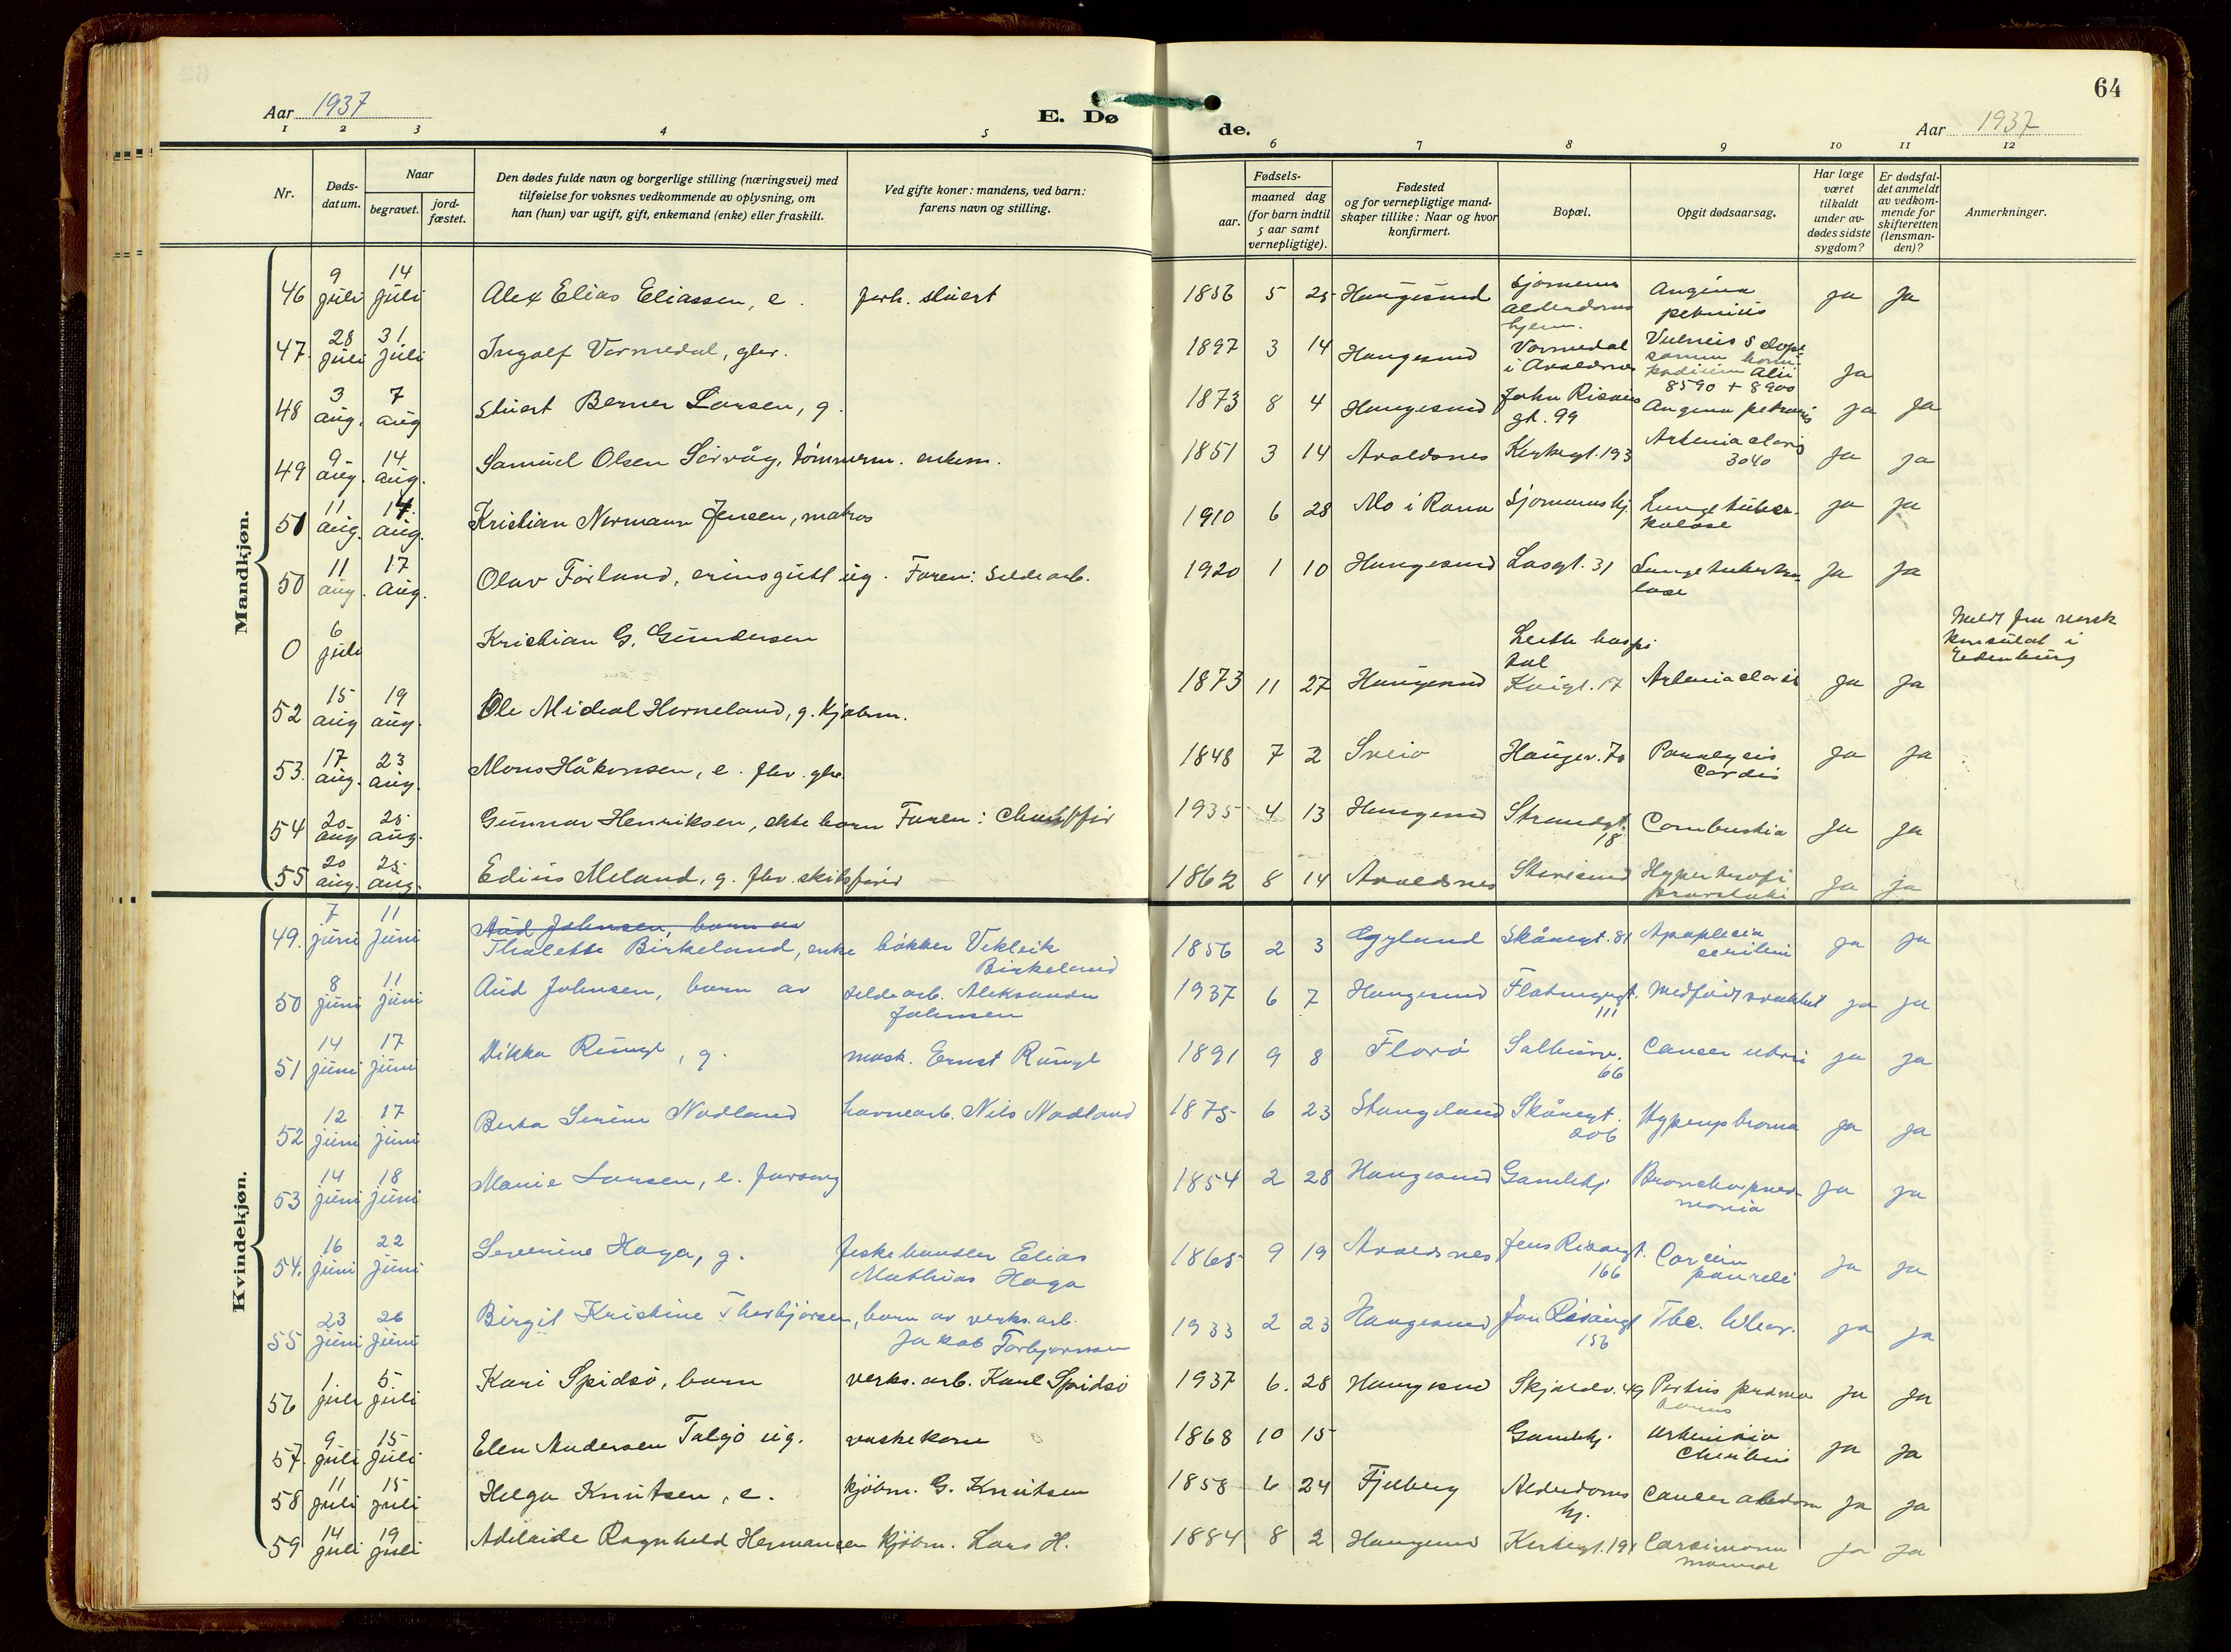 64
Aar 1937
E. Dø
de.
Aar 1937
1 2 3 4 5 6 7 8 9 10 11 12
Nr.
Døds-
datum.
Naar
begravet.
jord-
fæstet.
Den dødes fulde navn og borgerlige stilling (næringsvei) med
tilføielse for voksnes vedkommende av oplysning, om
han (hun) var ugift, gift, enkemand (enke) eller fraskilt.
Ved gifte koner: mandens, ved barn:
farens navn og stilling.
Fødsels-
aar.
maaned dag
(for barn indtil
5 aar samt
vernepligtige).
Fødested
og for vernepligtige mand-
skaper tillike: Naar og hvor
konfirmert.
Bopæl.
Opgit dødsaarsag.
Har læge
været
tilkaldt
under av-
dødes sidste
sygdom?
Er dødsfal-
det anmeldt
av vedkom-
mende for
skifteretten
(lensman-
den)?
Anmerkninger.
Mandkjøn.
46 9 juli 14 juli Alex Elias Eliassen, e. forh. stuert 1856 5 25 Haugesund Sjømenns alderdoms hjem. Angina ja ja
47. 28 juli 31 juli Ingolf Vormedal, gbr. 1897 3 14 Haugesund Vormedal i Avaldsnes 8590 + 8900 Ja
48 3 aug. 7 aug Stuert Berner Larsen, g. 1873 8 4 Haugesund gt. 99 Angina pectoris ja ja
49 9 aug. 14 aug. Samuel Olsen Sørvåg, tømmerm. enkem. 1851 3 14 Avaldsnes Kirkegt. 193 3040 ja ja
51 11 aug. 14. aug. Kristian Normann Jensen, matros 1910 6 28 Mo i Rana Sjømannshj. Lungetuber-kulose ja ja
50 11 aug. 17 aug. Olav Førland, erinsgutt ug. Faren: Sildearb. 1920 1 10 Haugesund 31 Lungetuberku-lose ja ja
0 6 juli Kristian G. Gundersen Leith hospi tal Meldt fra norsk konsulat i Edenburg
52 15 aug 19 aug. Ole Mideal Horneland, g. kjøbm. 1873 11 27 Haugesund 17 ja ja
53. 17 aug. 23 aug. Mons Håkonsen, e. fhv. gbr. 1848 7 2 Sveio Haugev. 70 Paralysis Cordis ja ja
54 20 aug 25 aug. Gunnar Henriksen, ekte barn Faren: 1935 4 13 Haugesund Strandgt. 18 Combustia ja ja
55 20 aug. 25. aug. Edius Meland, g. fhv. skibsfører 1862 8 14 Avaldsnes Hypertrofi prostati ja ja
Kvindekjøn.
49. 7 juni 11 juni Aud Johnsen, barn av
Thalette Birkeland, enke bøkker Birkeland 1856 2 3 Egyland Skåregt. 81 Apoplexia ja ja
50 8 juni 11 juni Aud Johnsen, barn av sildearb. Aleksander Johnsen 1937 6 7 Haugesund 111 Medfødt svakhet ja ja
51 14 juni 17 juni g. mask. Ernst 1891 9 8 Florø Salhusv. 66 Cancer uteri ja ja
52 12 juni 17 juni Berta Serine Nodland havnearb. Nils Nodland 1875 6 23 Stangeland Skåregt. 206 ja ja
53 14 juni 18 juni Marie Larsen, e. forsorg 1854 2 28 Haugesund Gamlehj. Bronchopneu-monia ja ja
54. 16 juni 22 juni Severine Haga, g. fiskehandler Elias Mathias Haga 1865 9 19 Avaldsnes 166 ja ja
55 23 juni 26 juni Birgit Kristine Thorbjørsen, barn av verks. arb. Jakob Torbjørnsen 1933 2 23 Haugesund 156 Tbc. ja ja
56 1 juli 5 juli Kari Spidsø, barn verks. arb. Karl Spidsø 1937 6. 28 Haugesund Skjoldv. 49 Partus ja ja
57. 9 juli 15 juli Elen Andersen Talgø ug. vaskekone 1868 10 15 Gamlehj. ja ja
58 11 juli 15 juli Helga Knutsen, e. kjøbm. G. Knutsen 1858 6 24 Fjelberg Alderdoms hj. Cancer ja ja
59 14 juli 19 juli Adelaide Ragnhild Hermansen kjøbm. Lars H. 1884 8 2 Haugesund Kirkegt. 191 Carsinoma mammae ja ja